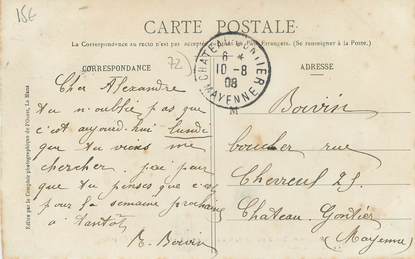 15€
CARTE POSTALE
La Correspondance au recto n'est pas acceptée par tous les Pays Etrangers. (Se renseigner à la Poste).
CORRESPONDANCE
72
CHATEAU-GONTIER
6 *
10 - 8
08
MAYENNE
M
ADRESSE
Cher Alexandre
tu n'oublie pas que
c'est aujourd'hui lundi
que tu viens me
chercher. j'ai peur
que tu penses que c'est
pour la semaine prochaine
a tantôt
R. Boivin
Boivin
boucher rue
Chevreul 25
Chateau-Gontier
(Mayenne)
Edition par le Comptoir photographique de l'Ouest, Le Mans